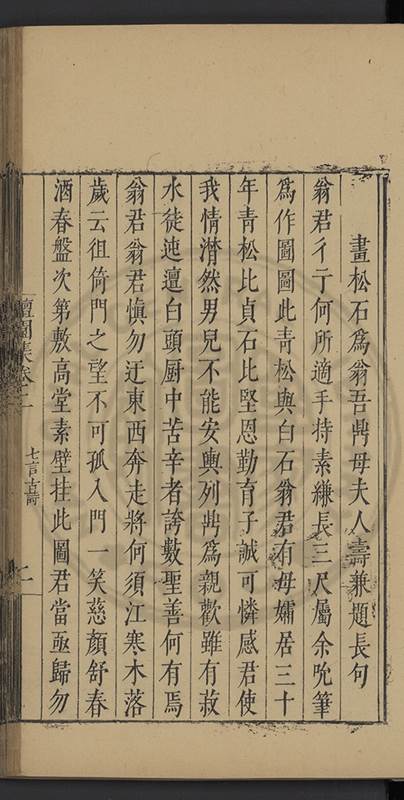 畫松石爲翁吾鼎母夫人壽兼題長句
翁君彳亍何所適手持素縑長三尺屬余吮筆
爲作圖圖此青松與白石翁君有母孀居三十
年青松比貞石比堅恩勤育子誠可憐感君使
我情潸然男兒不能安輿列鼎爲親歡雖有菽
水徒迍邅白頭厨中苦辛者誇數聖善何有焉
翁君翁君愼勿迂東西奔走將何須江寒木落
歲云徂倚門之望不可孤入門一笑慈顏舒春
酒春盤次第敷高堂素壁挂此圖君當亟歸勿
集卷之二
七言古詩
一